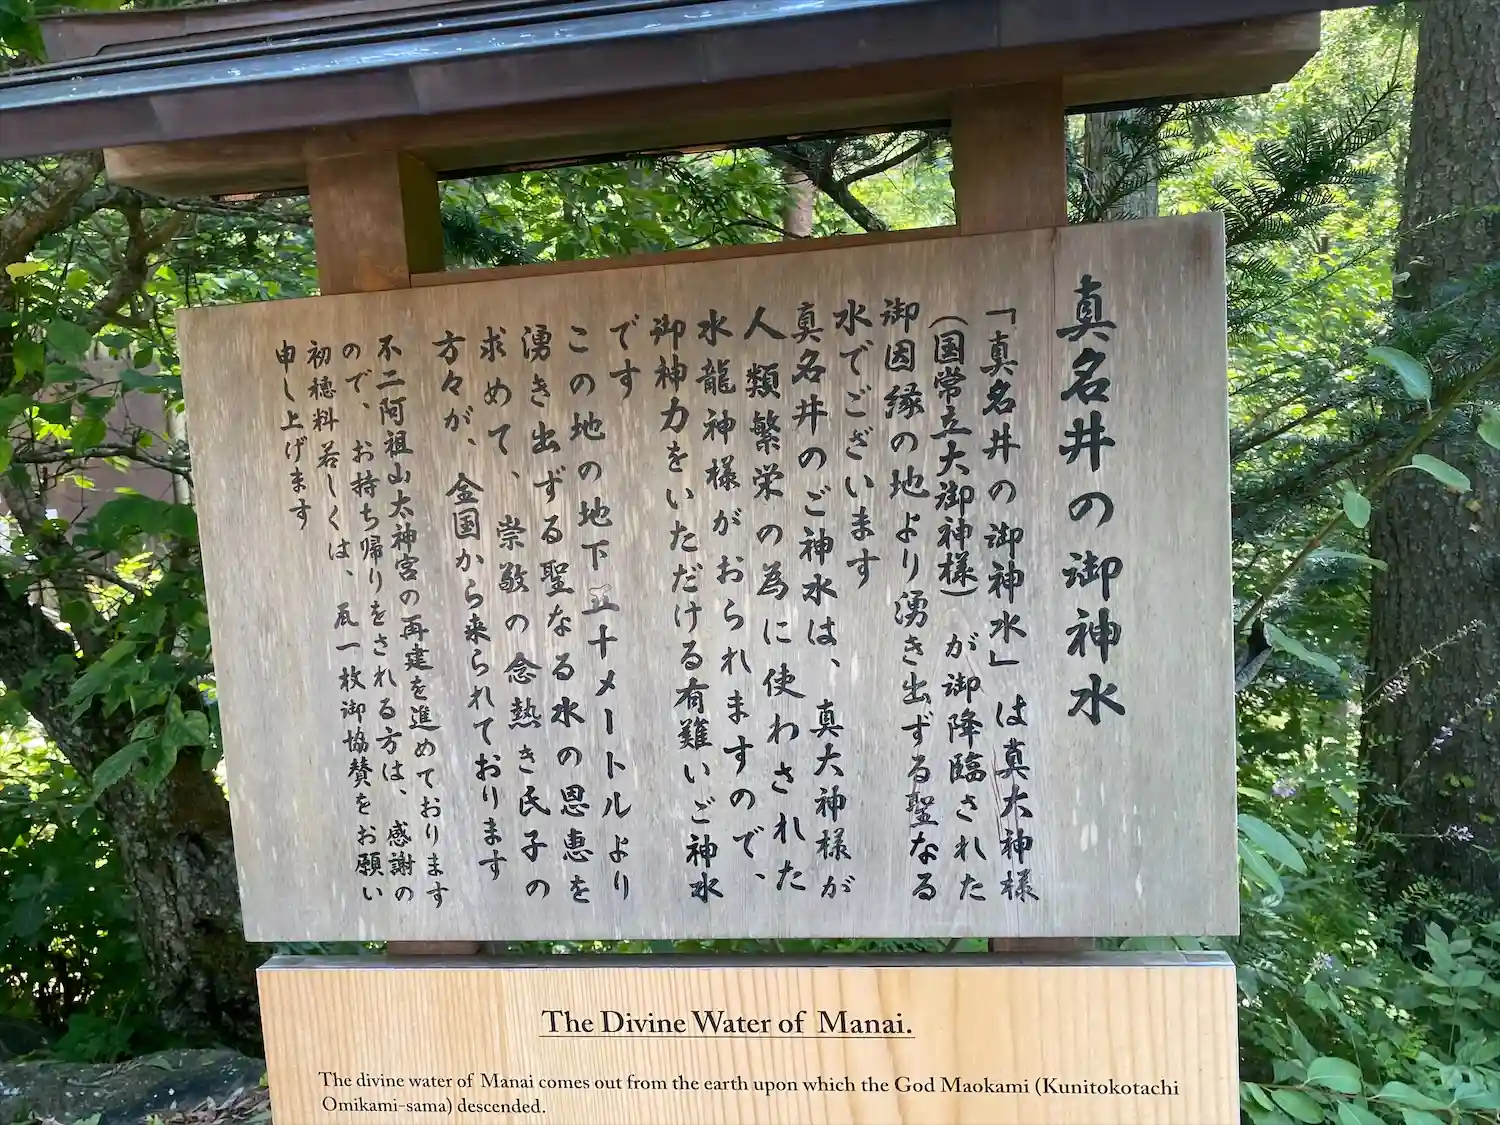 真名井の御神水
「真名井の御神水」は真大神様
（国常立大御神様）が御降臨された
御因縁の地より湧き出ずる聖なる
水でございます
真名井のご神水は、真大神様が
人類繁栄の為に使わされた
水龍神様がおられますので、
御神力をいただける有難いご神水
です
この地の地下五十メートルより
湧き出ずる聖なる水の恩恵を
求めて、崇敬の念熱き氏子の
方々が、全国から来られております
不二阿祖山太神宮の再建を進めております
ので、お持ち帰りをされる方は、感謝の
初穂料若しくは、瓦一枚御協賛をお願い
申し上げます
The Divine Water of Manai.
The divine water of Manai comes out from the earth upon which the God Maokami (Kunitokotachi
Omikami-sama) descended.